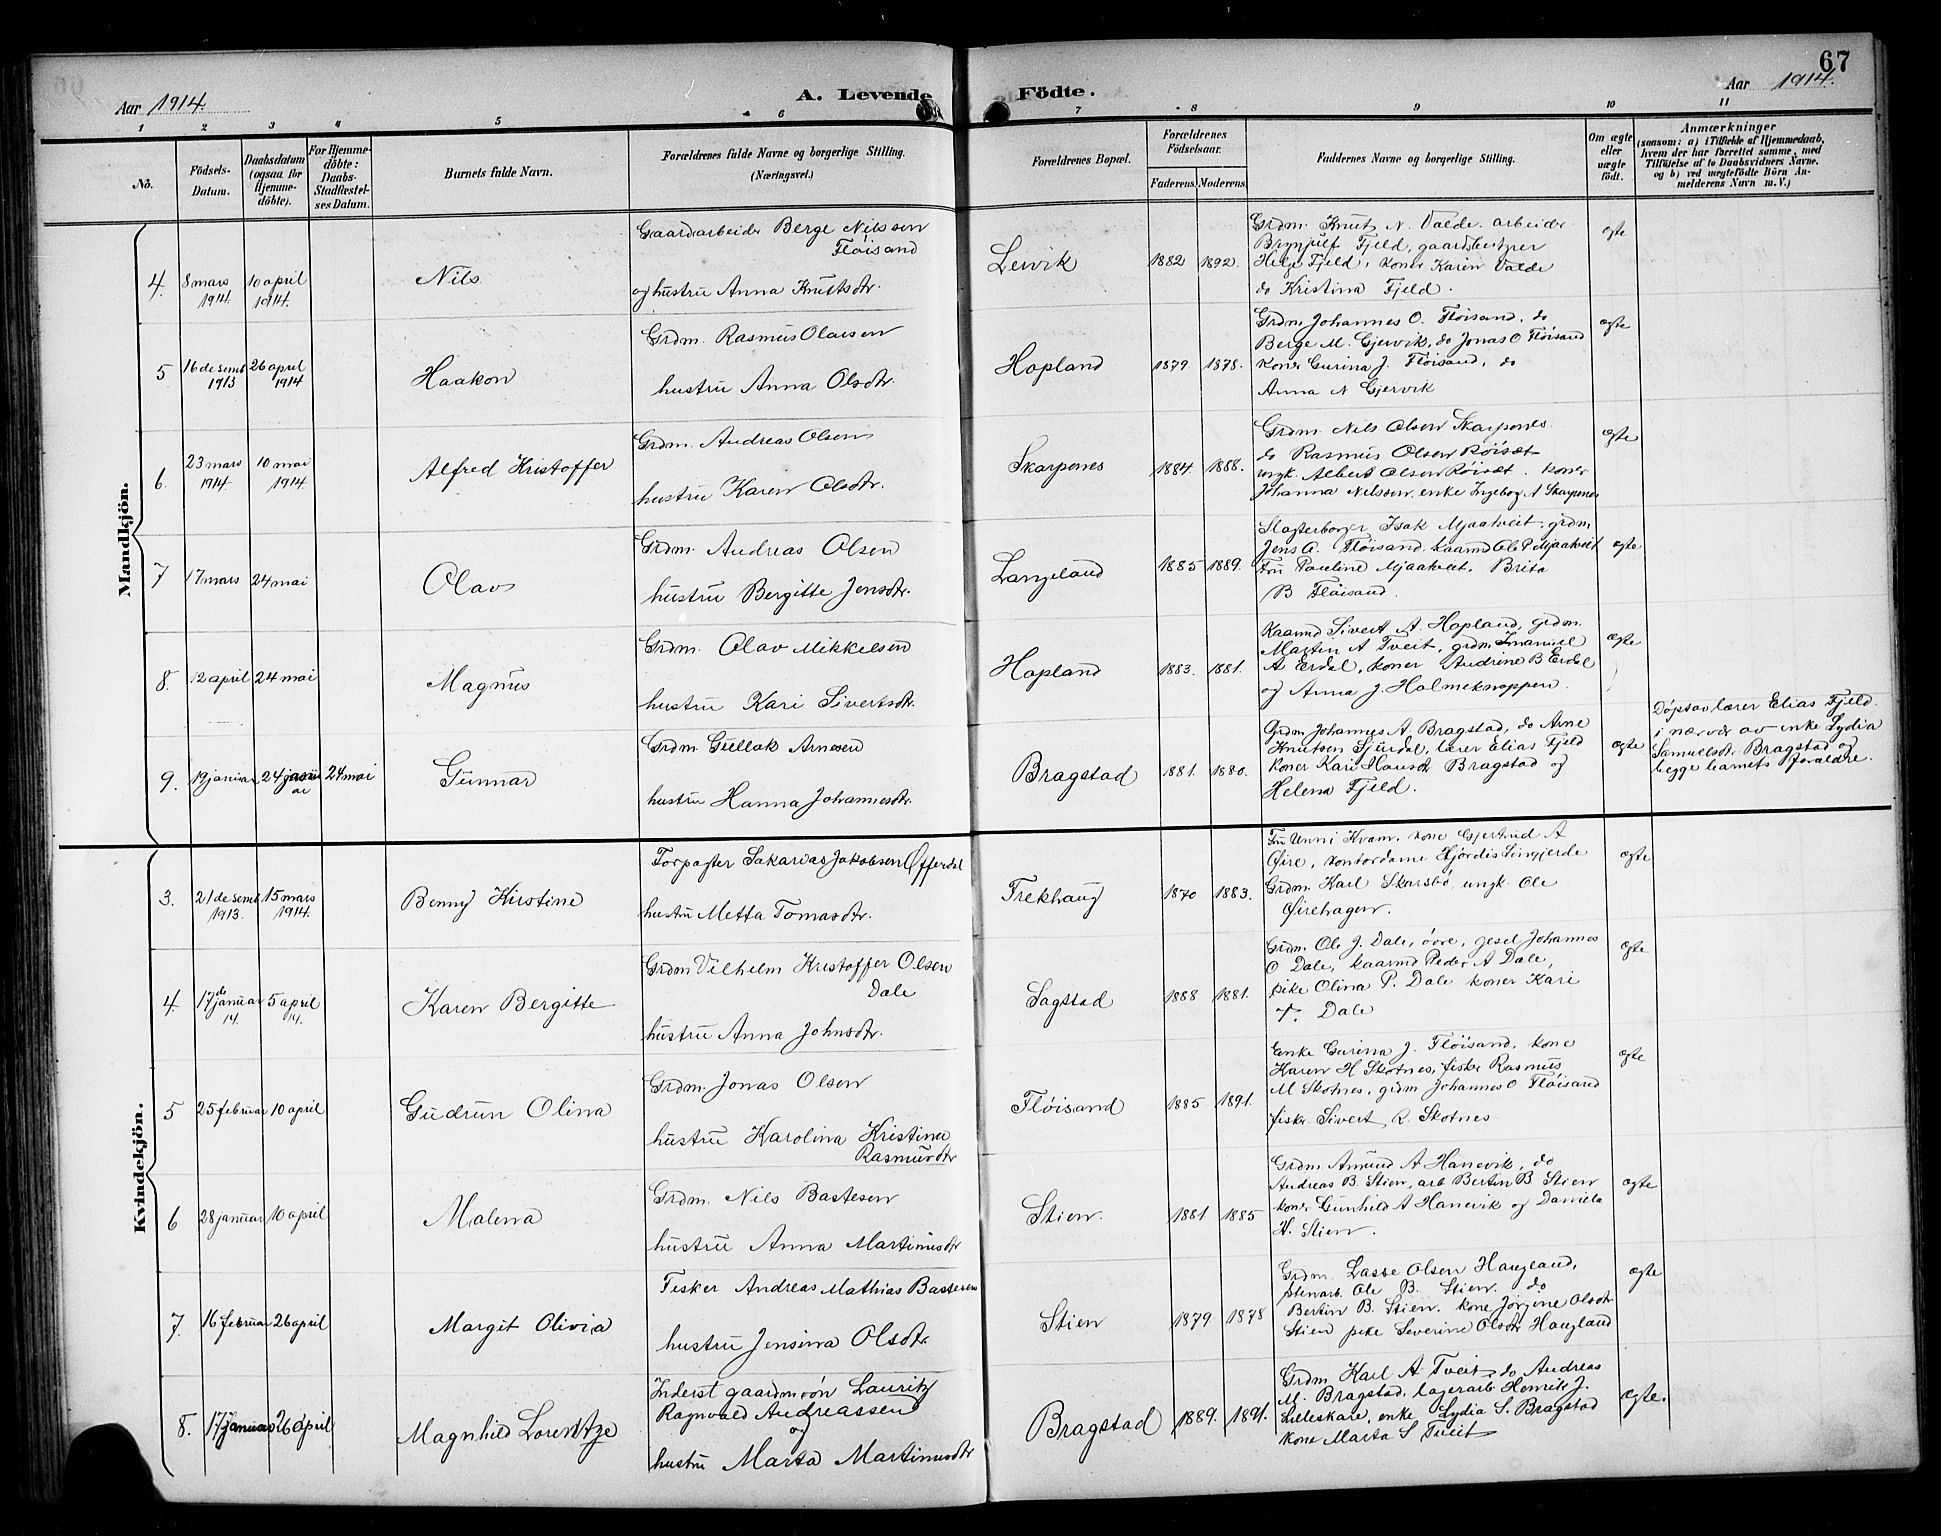 67
Aar 1914.
A. Levende Födte.
Aar 1914.
1 2 3 4 5 6 7 8 9 10 11
No.
Födsels-Datum.
Daabsdatum (ogsaa for Hjemme-döbte).
For Hjemme-döbte: Daabs-Stadfæstel-ses Datum.
Barnets fulde Navn.
Forældrenes fulde Navne og borgerlige Stilling.
(Næringsvei.)
Forældrenes Bopæl.
Forældrenes Födselsaar.
Faderens. Moderens.
Faddernes Navne og borgerlige Stilling.
Om ægte eller uægte födt.
Anmærkninger
(saasom: a) i Tilfælde af Hjemmedaab,
hvem der har forrettet samme, med
Tilföielse af to Daabsvidners Navne,
og b) ved uægtefödte Börn An-
melderens Navn m. V.)
Mandkjön.
4. 8 mars 1914. 10 april 1914.
Nils
Gaardarbeider Berge Nilssen
Fløisand
og hustru Anna Knutsdtr.
Leivik 1882 1892.
Grdm. Knut N. Valde. arbeider
Brynjulf Fjeld, gaardsbestyrer
Helge Fjeld, koner Karin Valde
do Kristina Fjeld.
ægte
5 16 desemb 1913 26 april 1914
Haakon
Grdm. Rasmus Olaisen
hustru Anna Olsdtr.
Hopland 1879 1878.
Grdm. Johannes O. Fløisand, do
Berge M. Gjervik, do Jonas O Fløisand
koner Gurina J. Fløisand, do
Anna N Gjervik
ægte
6. 23 mars 1914. 10 mai 1914.
Alfred Kristoffer
Grdm. Andreas Olsen
hustru Karen Olsdtr.
Skarpenes 1884. 1888.
Grdm. Nils Olsen Skarpenes
do Rasmus Olsen Røiset
ungk. Albert Olsen Røiset. koner
Johanna Nilssen, enke Ingeborg A Skarpenes
ægte
7 17 mars 24 mai
Olav
Grdm. Andreas Olsen
hustru Bergitte Jensdtr.
Langeland 1885 1889.
Slagterborger Isak Mjaatveit, grdm
Jens A. Fløisand, kaarmd Ole P Mjaatveit
Fru Pauline Mjaatveit, Brita
B Fløisand.
ægte
8. 12 april 24 mai
Magnus
Grdm. Olav Mikkelsen
hustru Kari Sivertsdtr.
Hopland 1883. 1881.
Kaarmd Sivert A. Hopland, grdm.
Martin A Tveit, grdm Imanuel
A Erdal, koner Andrine B Erdal
og Anna J. Holmeknappen.
ægte
9. 19 januar 24 januar 24 mai
Gunnar
Grdm Gullak Arnesen
hustru Hanna Johannesdtr.
Bragstad 1881. 1880.
Grdm Johannes A. Bragstad, do Arne
Knutsen Sjurdal, lærer Elias Fjeld
koner Kari Hansdtr Bragstad og
Helena Fjeld.
ægte
Døpt av lærer Elias Fjeld.
i nærvær av enke Lydia
Samuelsdtr. Bragstad og
begge barnets forældre.
Kvindekjön.
3. 21 desemb 1913. 15 mars 1914.
Benny Kirstine
Forpagter Sakarias Jakobsen Øfferdal
hustru Metta Tomasdtr.
Frekhaug 1870 1883.
Fru Unni Kvam, kone Gjertrud A
Øire, kontordame Hjørdis Lingjerde
Grdm. Karl Skarsbø, ungk. Ole
Øirehagen.
ægte
4. 17de januar 14. 5 april 14.
Karen Bergitte
Grdm Vilhelm Kristoffer Olsen
Dale
hustru Anna Johnsdtr.
Sagstad 1888 1881.
Grdm. Ole J. Dale, øvre, gesel Johannes
O Dale, kaarmd Peder A Dale,
pike Olina P. Dale koner Kari
T. Dale
ægte
5 25 februar 10 april
Gudrun Olina
Grdm. Jonas Olsen
hustru Karolina Kristine
Rasmusdtr
Fløisand 1885 1891.
Enke Gurina J. Fløisand, kone
Karen H Skotnes, fisker Rasmus
M Skotnes, grdm Johannes O Fløisand
fisker Sivert R. Skotnes.
ægte
6 28 januar 10 april
Malena
Grdm. Nils Bastesen
hustru Anna Martinusdtr
Stien. 1881 1885
Grdm Amund A Hanevik, do
Andreas B. Stien, arb Bertin B Stien
koner Gunhild A Hanevik og Daniela
H. Stien.
ægte
7. 16 februar 26 april
Margit Olivia
Fisker Andreas Mathias Bastesen
hustru Jensina Olsdtr.
Stien 1879 1878
Grdm. Lasse Olsen Haugland,
stenarb. Ole B. Stien. do
Bertin B. Stien. kone Jørgine Olsdtr.
Stien pike Severine Olsdtr Haugland
ægte
8. 17 januar 26 april
Magnhild Lorentze
Inderst gaardmøn Lauritz
Ragnvald Andreassen
og
hustru Marta Martinusdtr
Bragstad 1889. 1891.
Grdm Karl A Tveit, do Andreas
M. Bragstad, lagerarb Henrik J.
Lilleskare, enke Lydia S. Bragstad
kone Marta S Tveit
ægte.